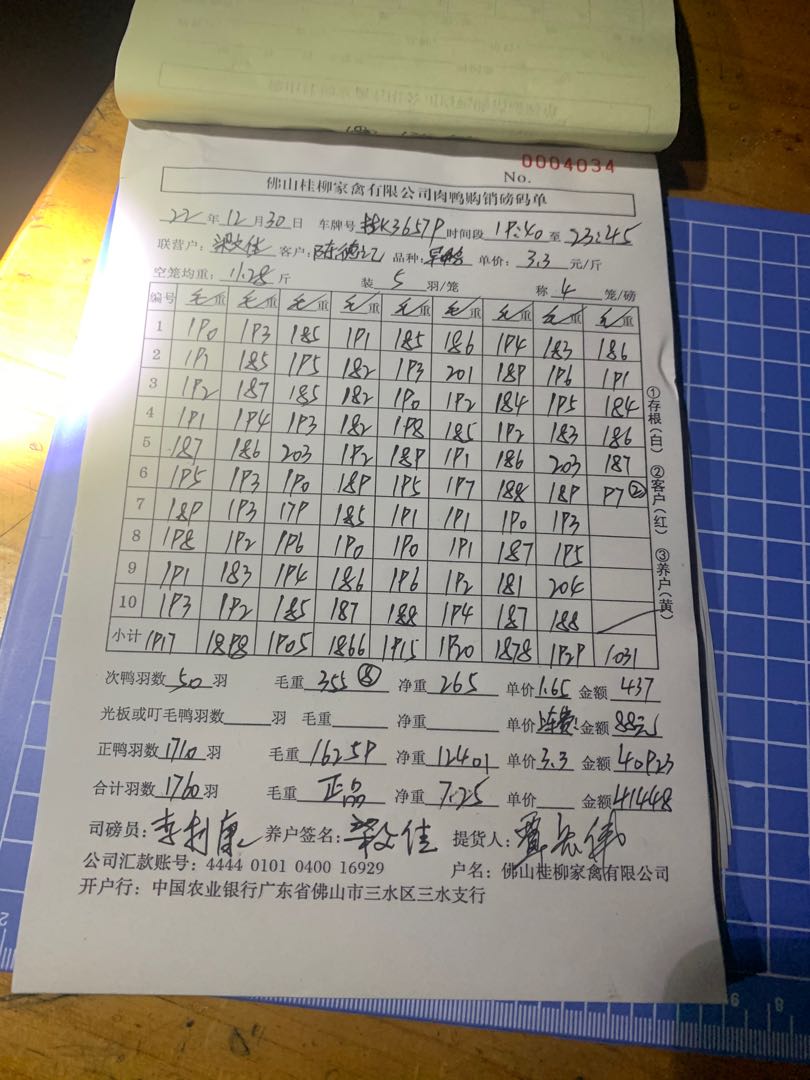 0004034
No.
佛山桂柳家禽有限公司肉鸭购销磅码单
22年12月30日 车牌号K36579时间段19:40至23:45
联营户：梁文佳 客户：陈德 品种： 单价：3.3元/斤
空笼均重：11.28斤 装5羽/笼 称4笼/磅
编号 毛重 毛重 毛重 毛重 毛重 毛重 毛重 毛重 毛重
1 190 193 185 191 185 186 194 183 186
2 191 185 195 182 193 201 189 196 191
3 192 187 185 182 190 192 184 195 184
4 191 194 193 182 198 185 192 183 186
5 187 186 203 192 189 191 186 203 187
6 195 193 190 189 195 197 188 189 97②
7 189 193 179 185 191 191 190 193
8 198 192 196 190 190 191 187 195
9 191 183 194 186 196 192 181 204
10 193 192 185 187 188 194 187 188
小计 1917 1898 1905 1866 1915 1920 1878 1929 1031
次鸭羽数50羽 毛重355⑧ 净重265 单价1.65 金额437
光板或叮毛鸭羽数 羽 毛重 净重 单价 金额88元
正鸭羽数1710羽 毛重16259 净重12401 单价3.3 金额40923
合计羽数1760羽 毛重正品 净重7.25 单价 金额41448
司磅员：李利康 养户签名：梁文佳 提货人：
公司汇款账号：4444 0101 0400 16929 户名：佛山桂柳家禽有限公司
开户行：中国农业银行广东省佛山市三水区三水支行
①存根（白）②客户（红）③养户（黄）